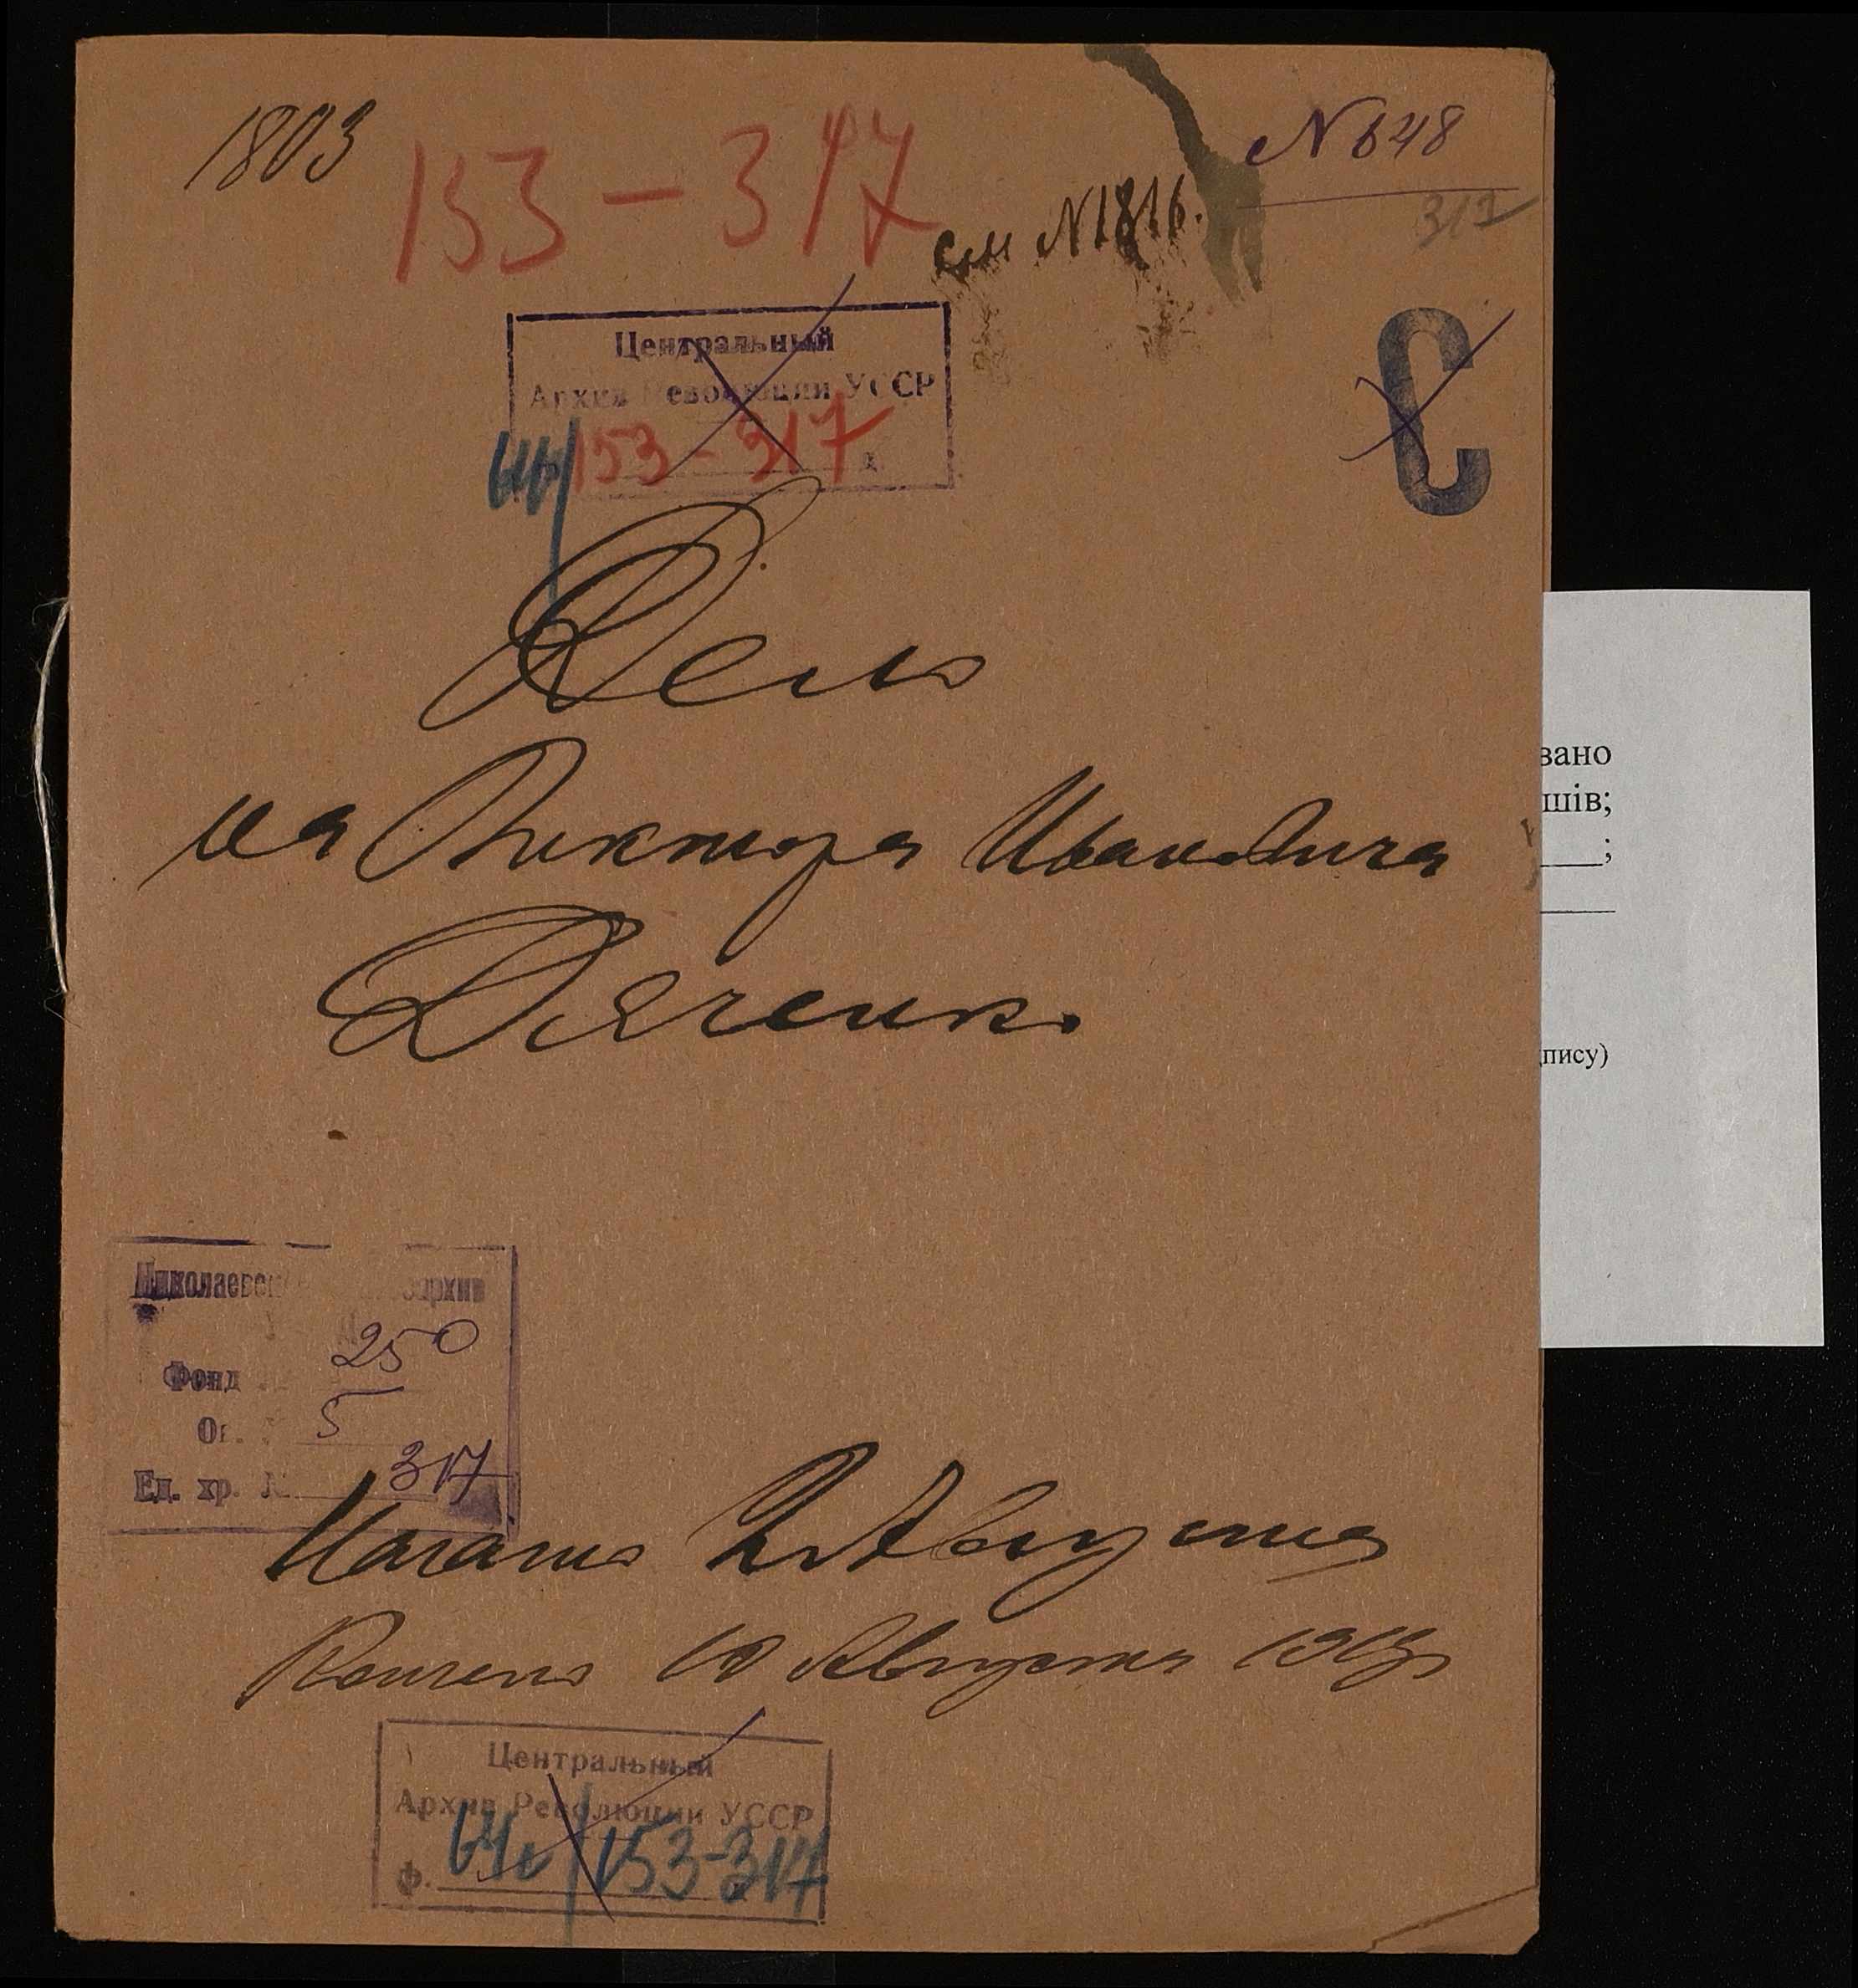 1803
153-317
№ 648
см №1816.
317
Центральный
Архив Революции УССР
153-317
С
Дело
на Виктора Ивановича
Дяченко
вано
шів;
;
пису)
Фонд 250
Оп. 5
Ед. хр. № 317
Начато 2 Августа
Кончено 10 Августа 1913г
Центральный
Архив Революции УССР
ф. 153-317